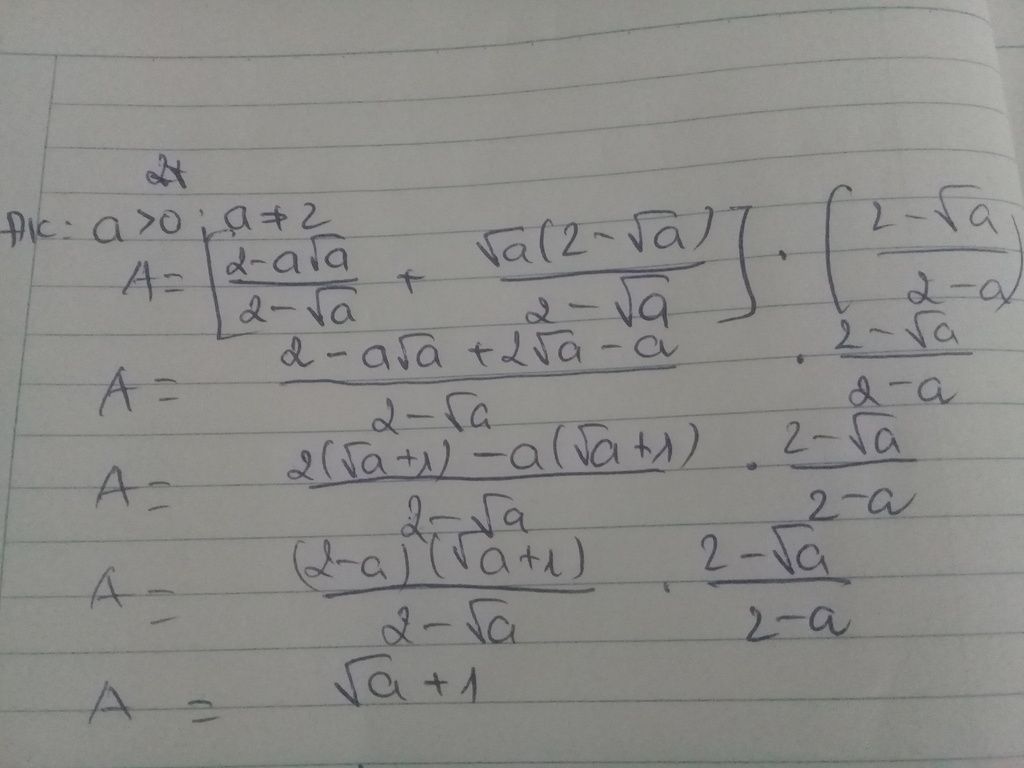 24
ĐK: a>0; a≠2
A = [(2-a√a)/(2-√a) + (√a(2-√a))/(2-√a)] . ((2-√a)/(2-a))
A = (2-a√a+2√a-a)/(2-√a) . (2-√a)/(2-a)
A = (2(√a+1)-a(√a+1))/(2-√a) . (2-√a)/(2-a)
A = ((2-a)(√a+1))/(2-√a) . (2-√a)/(2-a)
A = √a+1